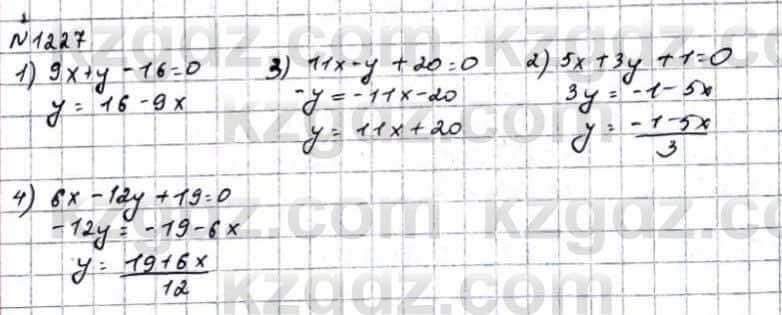 №1227
1) 9x+y-16=0
y = 16-9x
3) 11x-y+20=0
-y = -11x-20
y = 11x+20
2) 5x+3y+1=0
3y = -1-5x
y = \frac{-1-5x}{3}
4) 6x-12y+19=0
-12y = -19-6x
y = \frac{19+6x}{12}
kzgdz.com